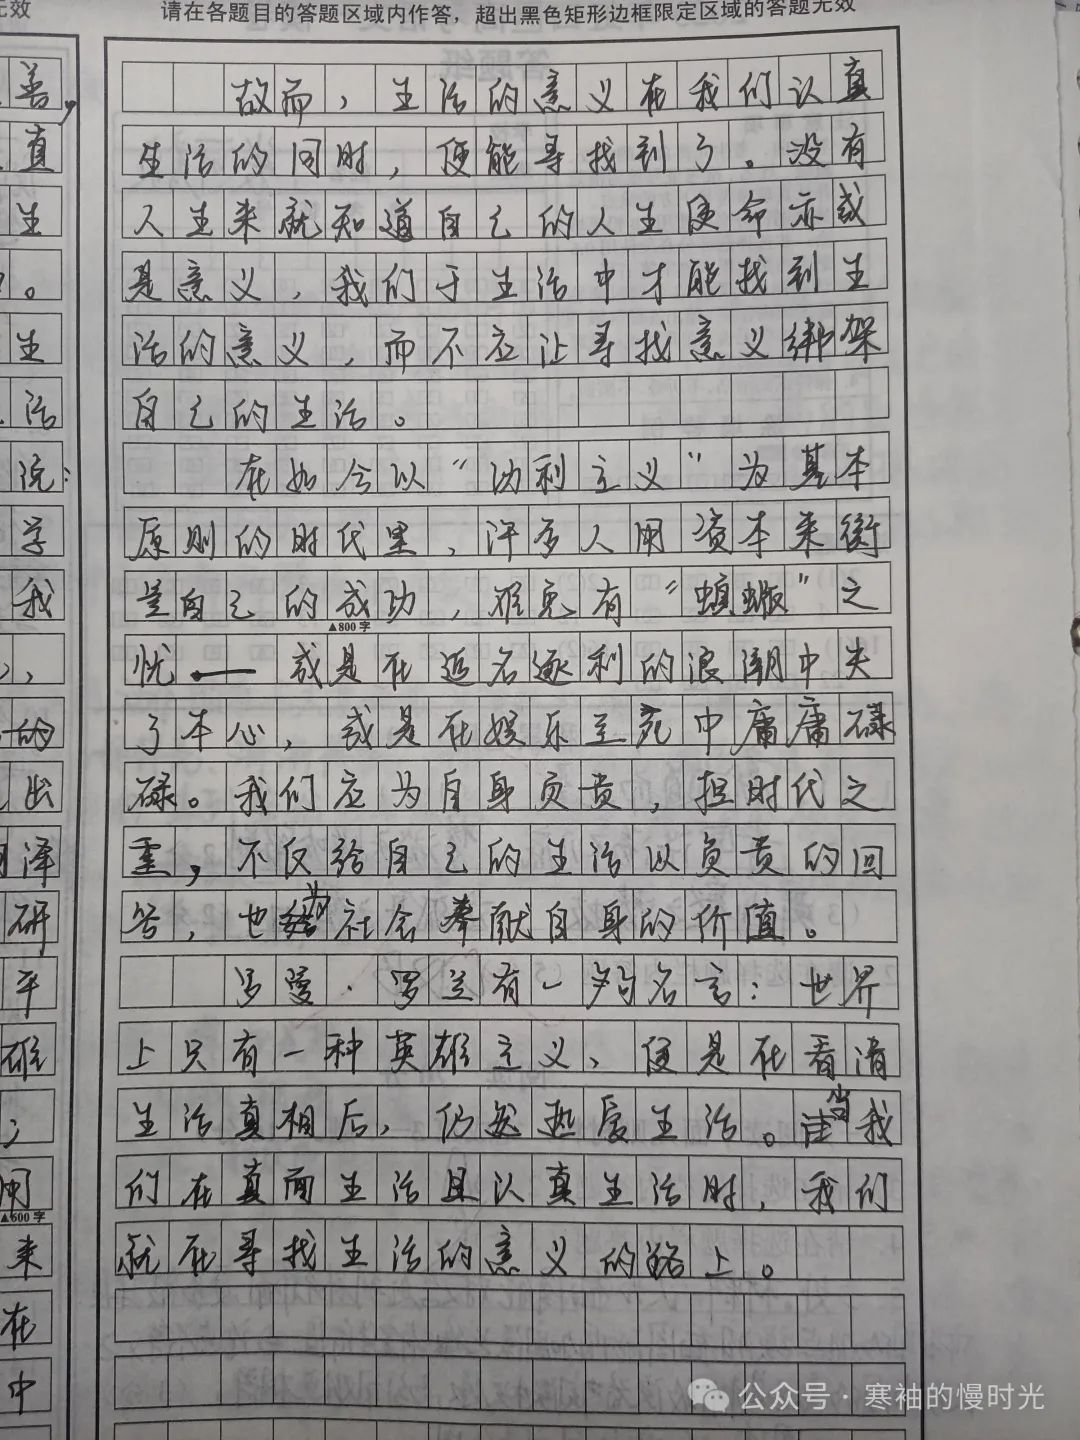 请在各题目的答题区域内作答，超出黑色矩形边框限定区域的答题无效
故而，生活的意义在我们认真
生活的同时，便能寻找到了。没有
人生来就知道自己的人生使命亦或
是意义，我们于生活中才能找到生
活的意义，而不应让寻找意义绑架
自己的生活。
在如今以“功利主义”为基本
原则的时代里，许多人用资本来衡
量自己的成功，难免有“蝜蝂”之
▲800字
忧——或是在追名逐利的浪潮中失
了本心，或是在娱乐至死中庸庸碌
碌。我们应为自身负责，担时代之
重，不仅给自己的生活以负责的回
答，也为社会奉献自身的价值。
罗曼·罗兰有一句名言：世界
上只有一种英雄主义，便是在看清
生活真相后，仍然热爱生活。当我
们在直面生活且认真生活时，我们
就在寻找生活的意义的路上。
无效
善，
真
生
。
生
活
说：
学
我
，
的
出
泽
研
平
雄
；
用
▲600字
来
在
中
公众号·寒袖的慢时光